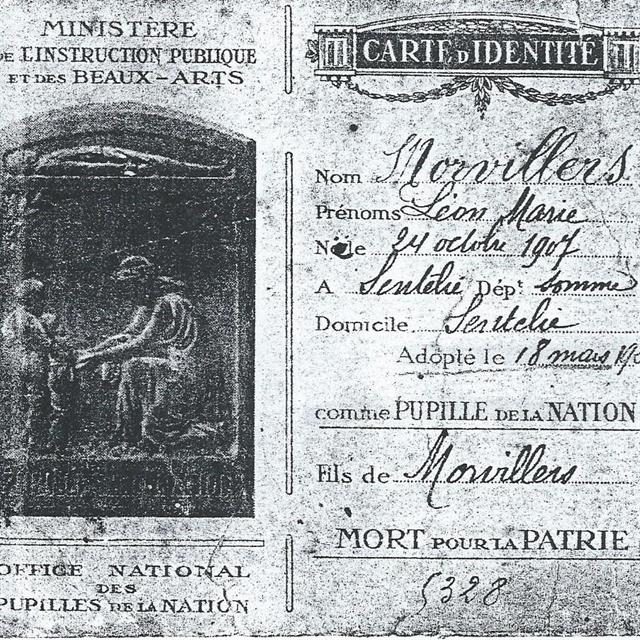 MINISTÈRE
DE L'INSTRUCTION PUBLIQUE
ET DES BEAUX-ARTS
OFFICE NATIONAL
DES
PUPILLES DE LA NATION
CARTE D'IDENTITÉ
Nom Morvillers
Prénoms Léon Marie
Né le 24 octobre 1907
A Sentelie Dépt Somme
Domicile Sentelie
Adopté le 18 mars
comme PUPILLE DE LA NATION
Fils de Morvillers
MORT POUR LA PATRIE
5328